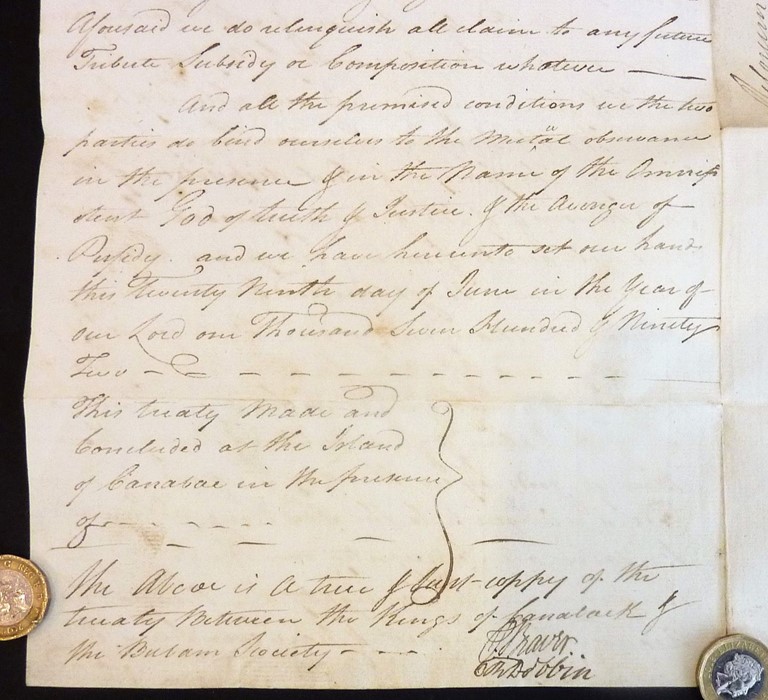 Aforesaid we do relinquish all claim to any future
Tribute Subsidy or Composition whatever —
And all the premised conditions we the two
parties do bind ourselves to the Mutüal observance
in the presence & in the Name of the Omnip
otent God of truth & Justice. & the Avenger of
Perfidy. and we have hereunto set our hands
this Twenty Ninth day of June in the Year of
our Lord one Thousand Seven Hundred & Ninety
Two – – – – – – – – – – –
This treaty Made and
Concluded at the Island
of Canabac in the presence
of – – – – –
The Above is a true & Just coppy of the
treaty Between the Kings of Canaback &
the Bulam Society – – – .
Dobbin